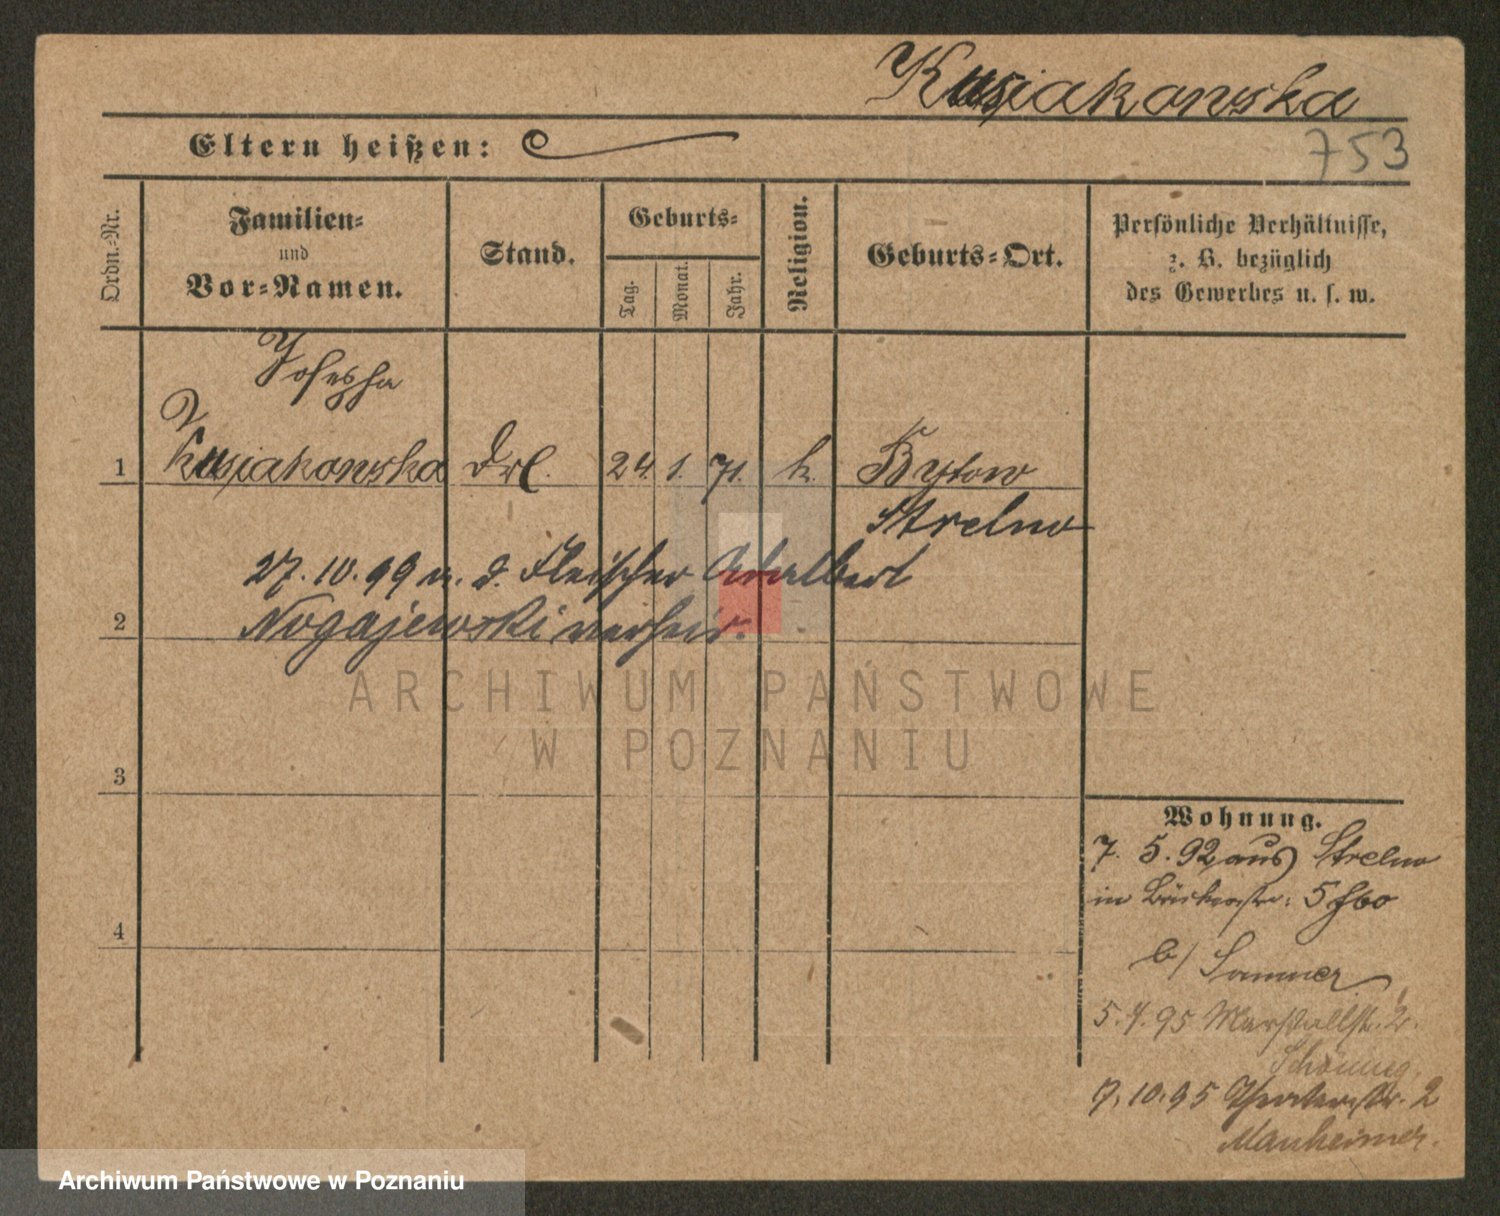 Kusiakowska
Eltern heißen:
753
Ordn.=Nr.
Familien=
und
Vor=Namen.
Stand.
Geburts=
Tag.
Monat.
Jahr.
Religion.
Geburts=Ort.
Persönliche Verhältnisse,
z. B. bezüglich
des Gewerbes u. s. w.
Josepha
1 Kusiakowska Drl. 24. 1. 71. k. Bytow
Strelno
27. 10. 99 m. d. Fleischer Adalbert
2 Nogajewski verheir.
ARCHIWUM PAŃSTWOWE
W POZNANIU
3
Wohnung.
7. 5. 92 aus Strelno
in 5
4
b/ Sommer
5. 4. 95 Marstallstr. 2.
Schönung.
7. 10. 95 Theaterstr. 2
Manheimer.
Archiwum Państwowe w Poznaniu